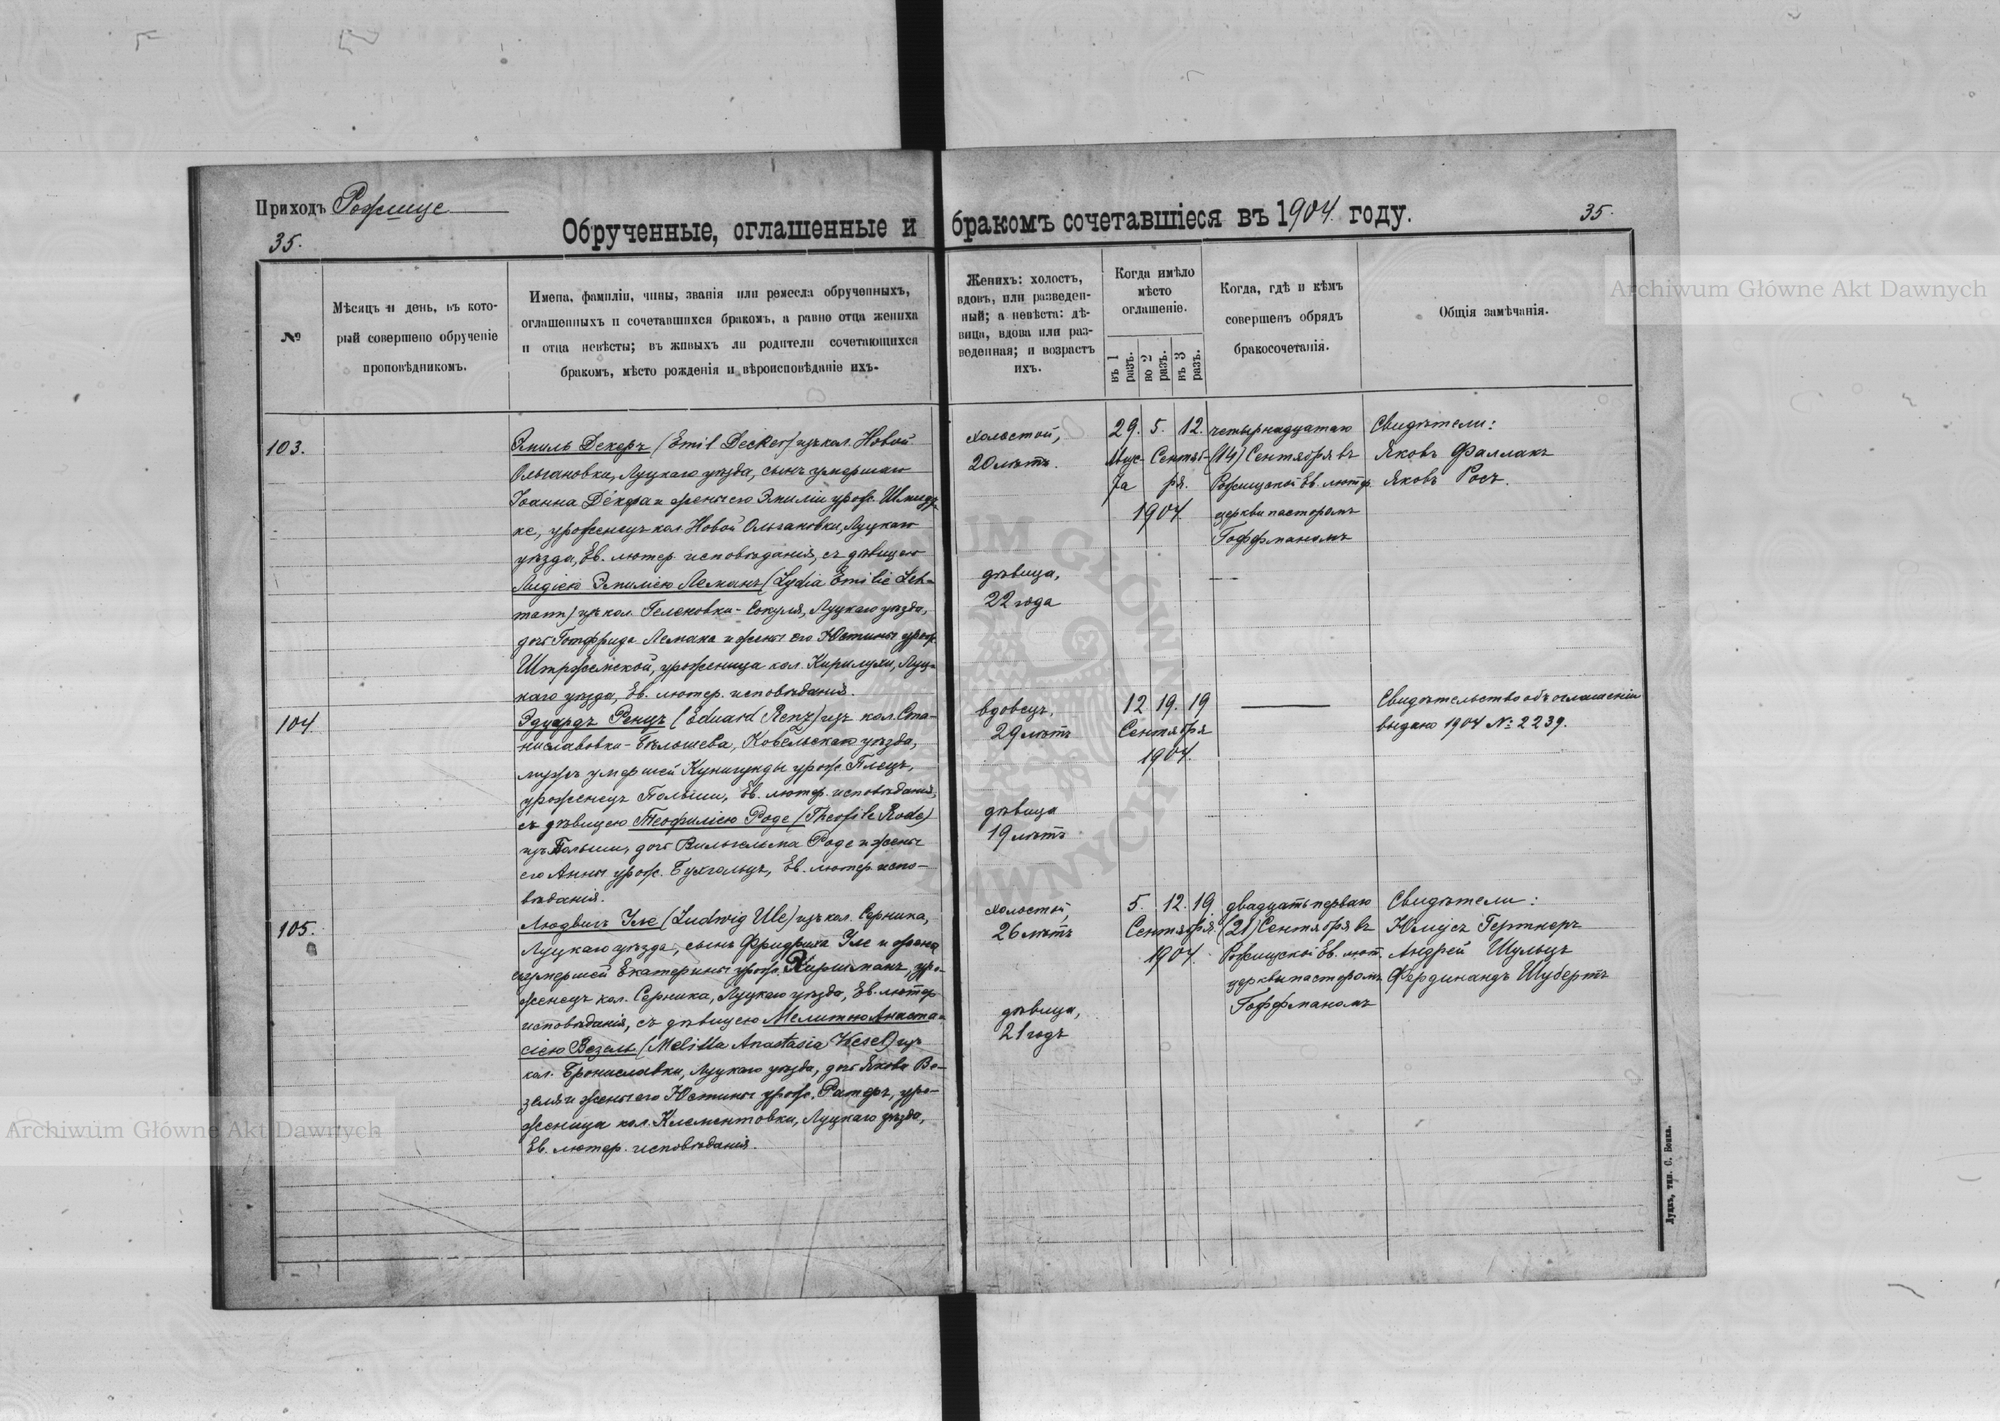 Приходъ Рожище
35.
Обрученные, оглашенные и бракомъ сочетавшіеся въ 1904. году.
35.
№
Мѣсяцъ и день, въ кото-
рый совершено обрученіе
проповѣдникомъ.
Имена, фамиліи, чины, званія или ремесла обрученныхъ,
оглашенныхъ и сочетавшихся бракомъ, а равно отца жениха
и отца невѣсты; въ живыхъ ли родители сочетающихся
бракомъ, мѣсто рожденія и вѣроисповѣданіе ихъ.
Женихъ: холостъ,
вдовъ, или разведен-
ный; а невѣста: дѣ-
вица, вдова или раз-
веденная; и возрастъ
ихъ.
Когда имѣло
мѣсто
оглашеніе.
въ 1
разъ.
во 2
разъ.
въ 3
разъ.
Когда, гдѣ и кѣмъ
совершенъ обрядъ
бракосочетанія.
Общія замѣчанія.
103.
Эмиль Декеръ (Emil Decker) изъ кол. Новой
Ольгановки, Луцкаго уѣзда, сынъ умершаго
Іоанна Декера и жены его Эмиліи урож. Шмидт-
ке, уроженецъ кол. Новой Ольгановки, Луцкаго
уѣзда, Ев. лютер. исповѣданія, съ дѣвицею
Лидіею Эмиліею Леманъ (Lydia Emilie Leh-
mann) изъ кол. Геленовки-Сокуля, Луцкаго уѣзда,
дочь Готфрида Лемана и жены его Юстины урож.
уроженица кол. Кирилухи, Луц-
каго уѣзда, Ев. лютер. исповѣданія.
холостой,
20 лѣтъ.
дѣвица,
22 года
29. 5. 12.
Авгус- Сентяб-
та ря.
1904.
четырнадцатаго
(14) Сентября въ
Рожищской Ев. лютер.
церкви пасторомъ
Гоффманомъ
Свидѣтели:
Яковъ Фаллакъ
Яковъ Росъ.
104.
Эдуардъ Ренцъ (Eduard Renz) изъ кол. Ста-
ниславовки-Бѣлашева, Ковельскаго уѣзда,
мужъ умершей Кунигунды урож. Плецъ,
уроженецъ Польши, Ев. лютер. исповѣданія,
съ дѣвицею Теофиліею Роде (Theofile Rode)
изъ Польши, дочь Вильгельма Роде и жены
его Анны урож. Бухгольцъ, Ев. лютер. испо-
вѣданія.
вдовецъ,
29 лѣтъ
дѣвица
19 лѣтъ
12 19. 19
Сентября
1904.
Свидѣтельство объ оглашеніи
выдано 1904 № 2239.
105.
Людвигъ Уле (Ludwig Ule) изъ кол. Серника,
Луцкаго уѣзда, сынъ Фридриха Уле и жены
умершей Екатерины урож. Киршманъ, уро-
женецъ кол. Серника, Луцкаго уѣзда, Ев. лютер.
исповѣданія, съ дѣвицею Мелиттою Анаста-
сіею Везель (Melitta Anastasia Wesel) изъ
кол. Брониславки, Луцкаго уѣзда, дочь Якова Ве-
зеля и жены его Юстины урож. Ратеръ, уро-
женица кол. Клементовки, Луцкаго уѣзда,
Ев. лютер. исповѣданія.
холостой,
26 лѣтъ
дѣвица,
21 годъ
5. 12. 19
Сентября.
1904.
двадцать перваго
(21) Сентября въ
Рожищской Ев. лют.
церкви пасторомъ
Гоффманомъ
Свидѣтели:
Юліусъ Гертнеръ
Андрей Шульцъ
Фердинандъ Шубертъ
Луцкъ, тип. С. Бонка.
Archiwum Główne Akt Dawnych
Archiwum Główne Akt Dawnych